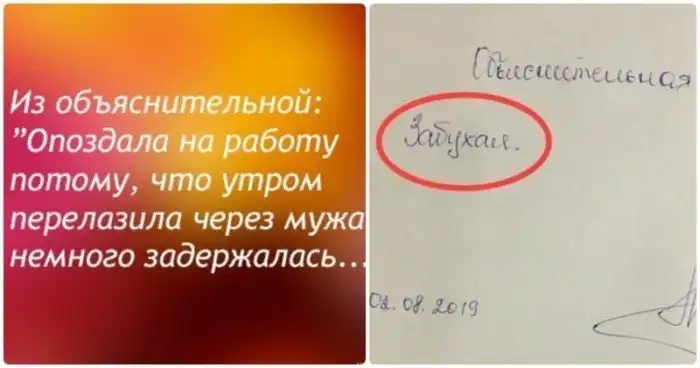 Из объяснительной:
"Опоздала на работу
потому, что утром
перелазила через мужа
немного задержалась...
Объяснительная
Забухал.
02.08.2019